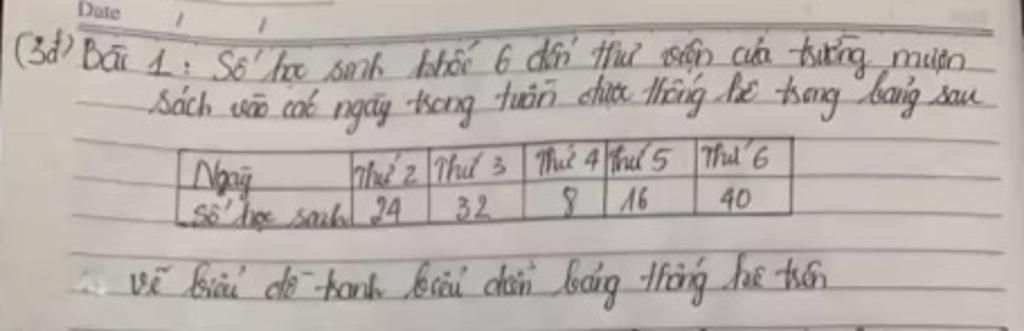 Date / /
(3đ) Bài 1: Số học sinh khối 6 đến thư viện của trường mượn
sách vào các ngày trong tuần được thống kê trong bảng sau
Ngày Thứ 2 Thứ 3 Thứ 4 Thứ 5 Thứ 6
Số học sinh 24 32 8 16 40
vẽ biểu đồ tranh biểu diễn bảng thống kê trên